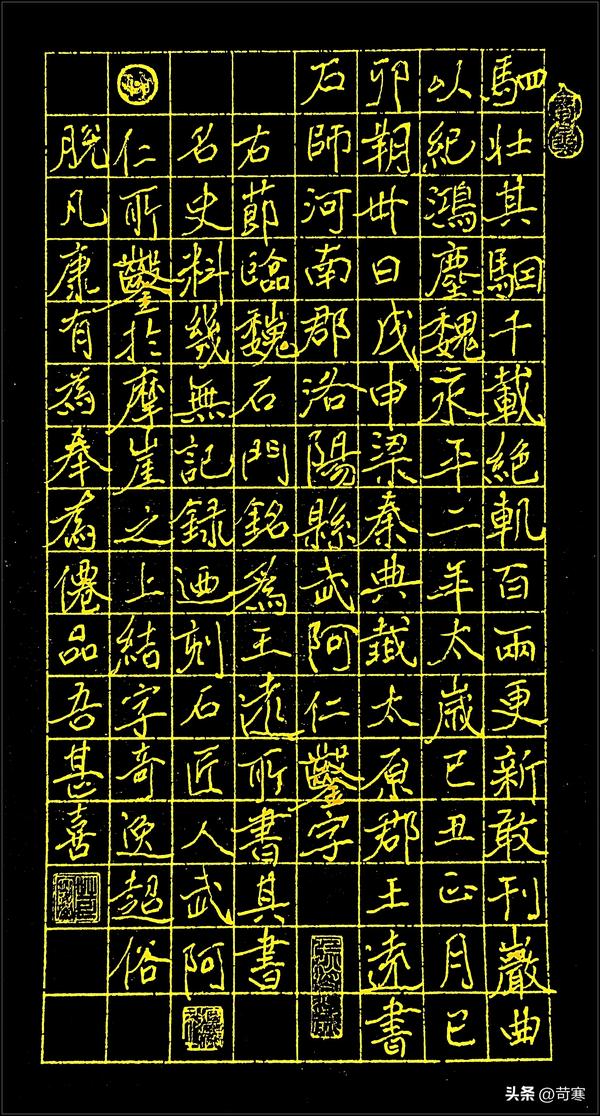 駟壯其駰千載絕軌百兩更新敢刊巖曲
以紀鴻塵魏永平二年太歲己丑正月己
卯朔卅日戊申梁秦典籤太原郡王遠書
石師河南郡洛陽縣武阿仁鑿字
右節臨魏石門銘為王遠所書其書
名史料幾無記録迺刻石匠人武阿
仁所鑿於摩崖之上結字奇逸超俗
脫凡康有為奉為僊品吾甚喜
头条 @苛寒